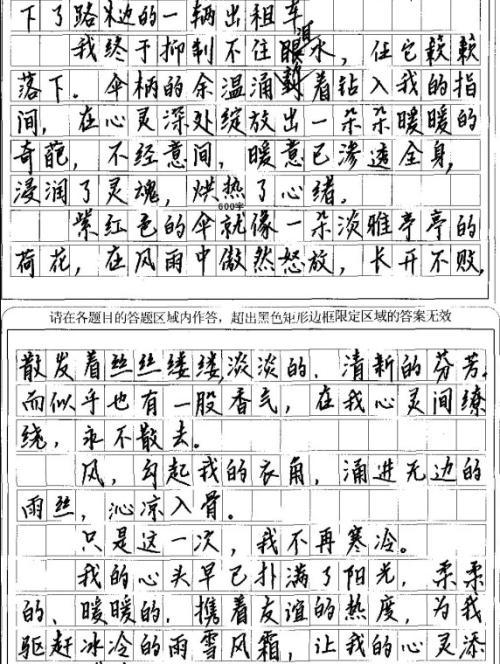 下了路边的一辆出租车
我终于抑制不住眼泪水，任它簌簌
落下。伞柄的余温涌着钻入我的指
间，在心灵深处绽放出一朵朵暖暖的
奇葩，不经意间，暖意已渗透全身，
浸润了灵魂，烘热了心绪。
600字
紫红色的伞就像一朵淡雅亭亭的
荷花，在风雨中傲然怒放，长开不败，
请在各题目的答题区域内作答，超出黑色矩形边框限定区域的答案无效
散发着丝丝缕缕，淡淡的、清新的芬芳，
而似乎也有一股香气，在我心灵间缭
绕，永不散去。
风，勾起我的衣角，涌进无边的
雨丝，沁凉入骨。
只是这一次，我不再寒冷。
我的心头早已扑满了阳光，柔柔
的、暖暖的，携着友谊的热度，为我
驱赶冰冷的雨雪风霜，让我的心灵添